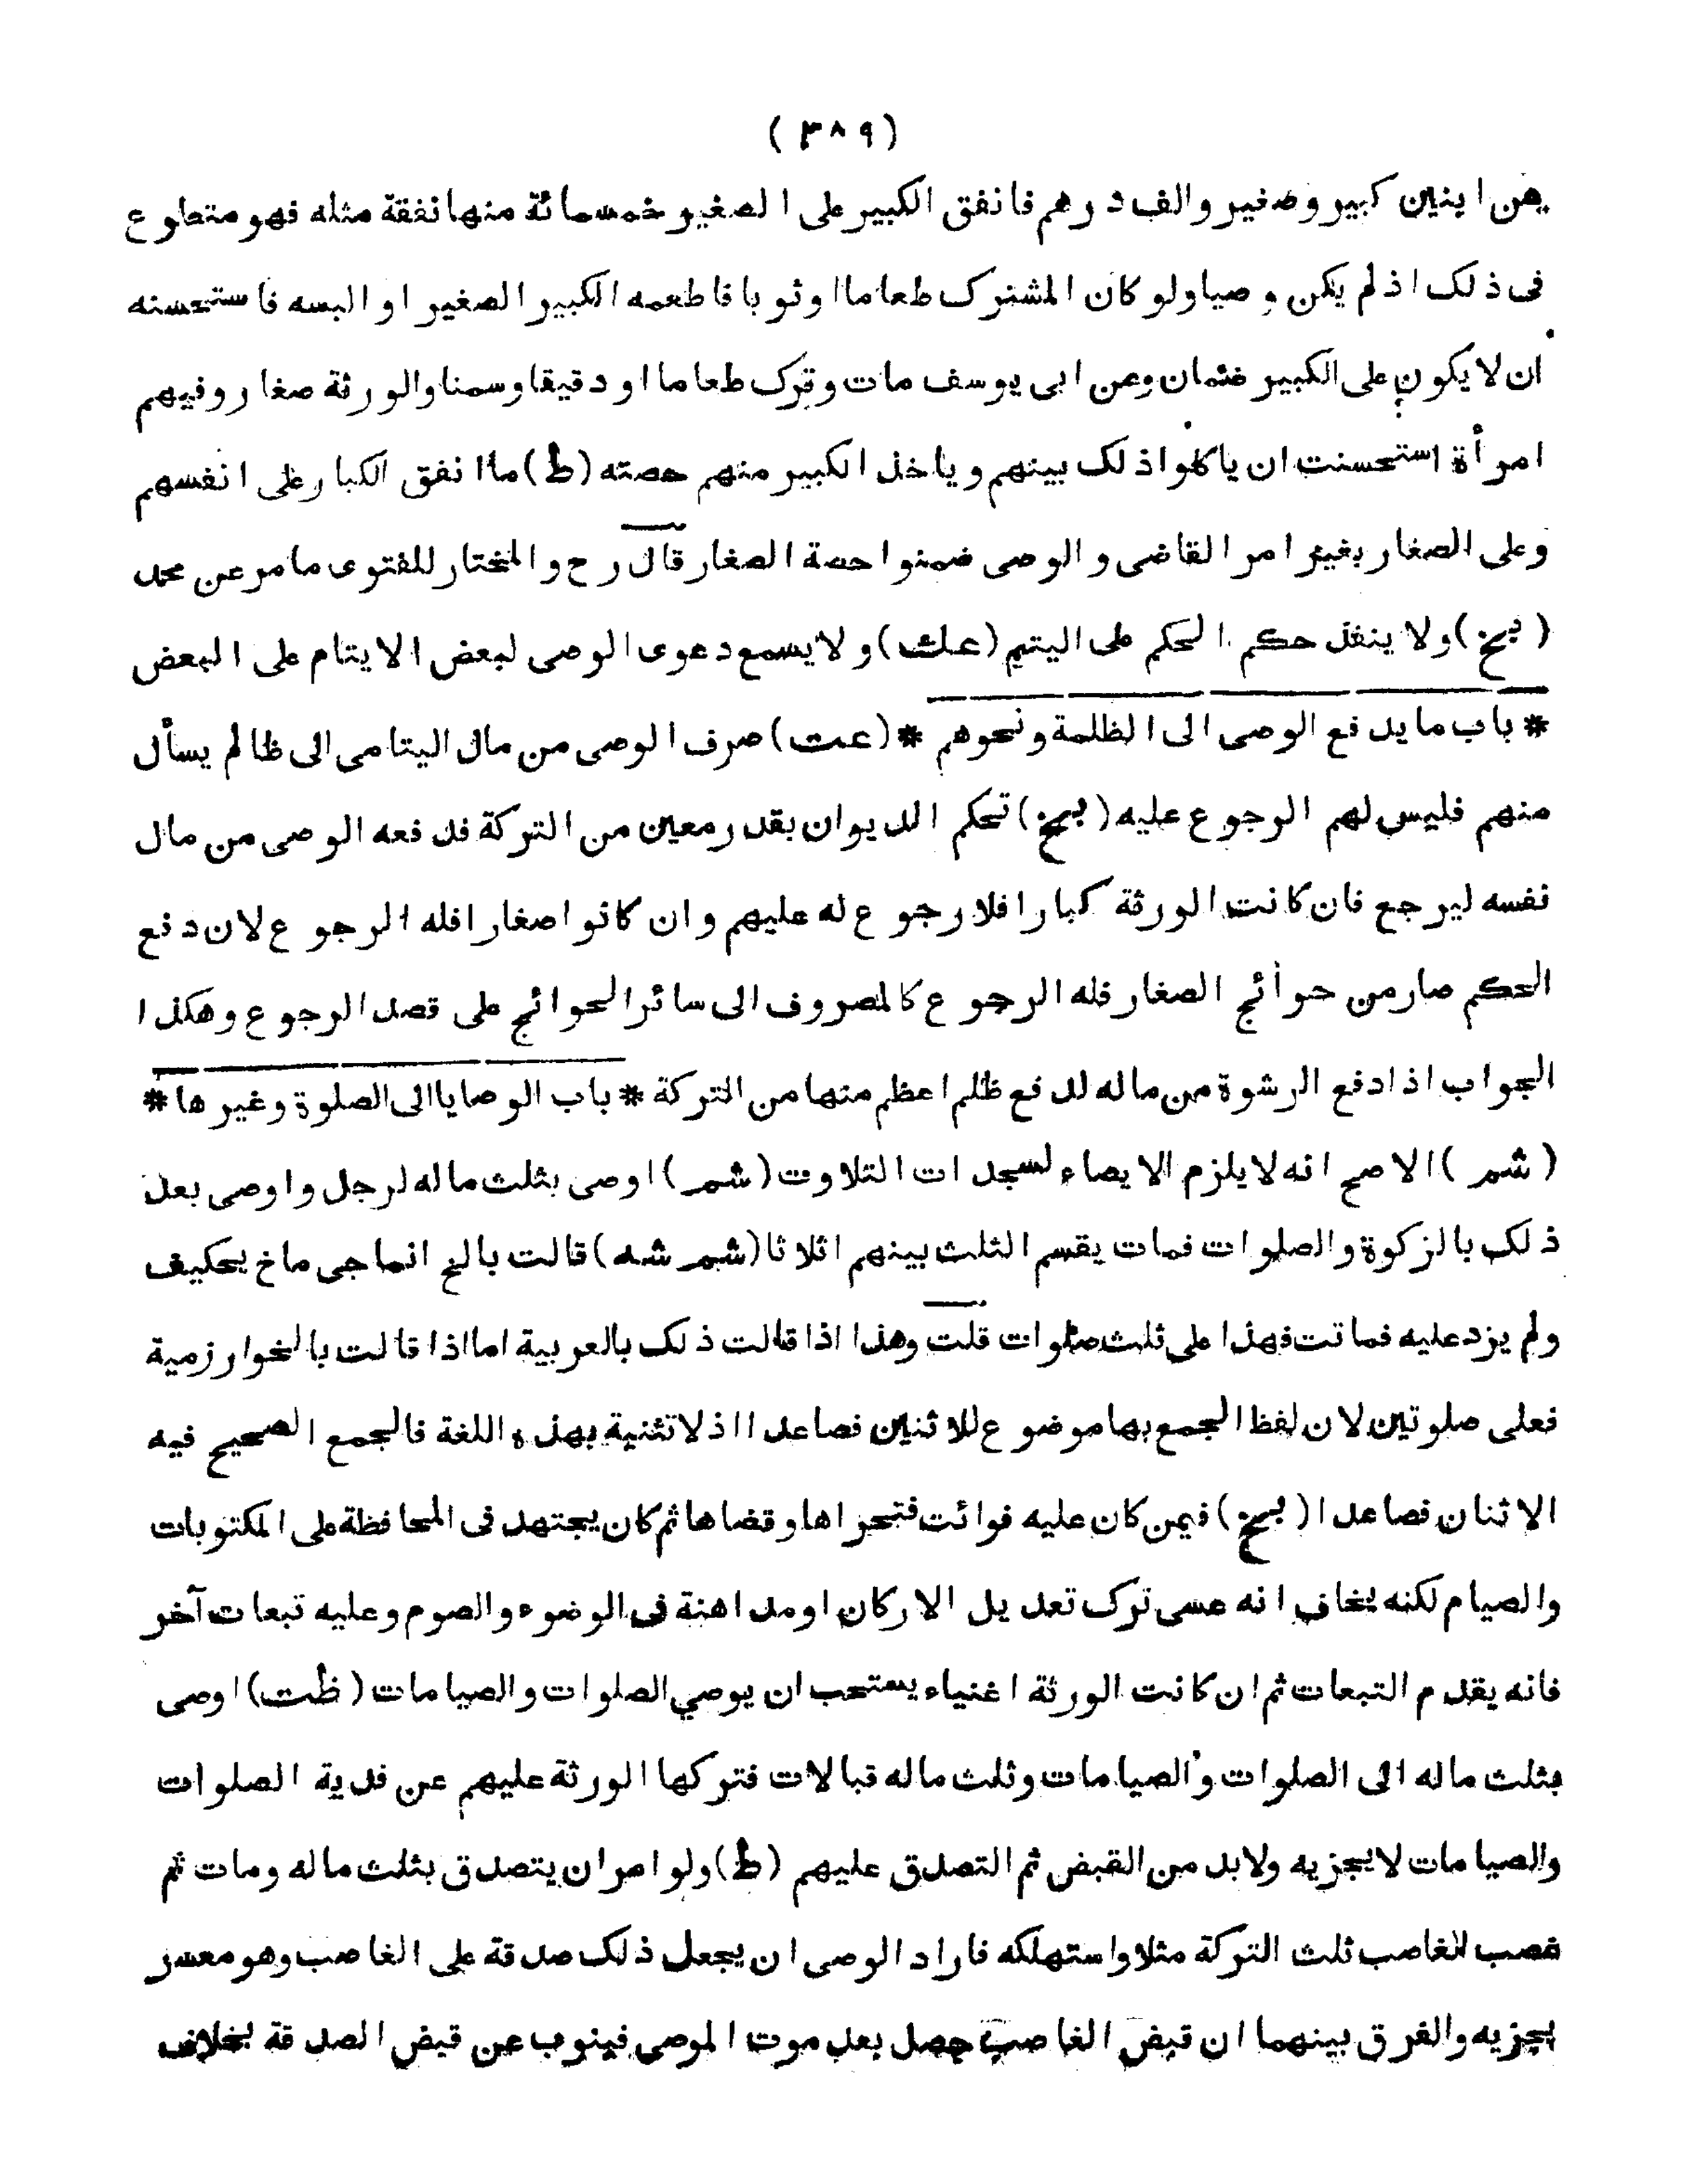 ( ٣٨٩ )
عن ابنين كبير وصغير والف درهم فانفق الكبير على الصغير خمسمائة منها نفقة مثله فهو متطوع
فى ذلك اذ لم يكن وصيا ولو كان المشترك طعاما او ثوبا فاطعمه الكبير الصغير او البسه فاستحسنه
ان لا يكون على الكبير ضمان وعن ابى يوسف مات وترك طعاما او دقيقا وسمنا والورثة صغار وفيهم
امرأة استحسنت ان ياكلوا ذلك بينهم وياخذ الكبير منهم حصته (ط) ما انفق الكبار على انفسهم
وعلى الصغار بغير امر القاضى والوصى ضمنوا حصة الصغار قال رح والمختار للفتوى ما مر عن محمد
( بخ ) ولا ينفذ حكم الحكم على اليتيم (عك) ولا يسمع دعوى الوصى لبعض الايتام على البعض
* باب ما يدفع الوصى الى الظلمة ونحوهم * (عت) صرف الوصى من مال اليتامى الى ظالم يسأل
منهم فليس لهم الرجوع عليه ( بخ ) تحكم الديوان بقدر معين من التركة فدفعه الوصى من مال
نفسه ليرجع فان كانت الورثة كبارا فلا رجوع له عليهم وان كانوا صغارا فله الرجوع لان دفع
الحكم صار من حوائج الصغار فله الرجوع كالمصروف الى سائر الحوائج على قصد الرجوع وهكذا
الجواب اذا دفع الرشوة من ماله لدفع ظلم اعظم منها من التركة * باب الوصايا الى الصلوة وغيرها *
( شم ) الاصح انه لا يلزم الايصاء لسجدات التلاوت (شم) اوصى بثلث ماله لرجل واوصى بعد
ذلك بالزكوة والصلوات فمات يقسم الثلث بينهم اثلاثا (شم شه) قالت بالخ انماجى ماخ يحكيف
ولم يزد عليه فماتت فهذا على ثلث صلوات قلت وهذا اذا قالت ذلك بالعربية اما اذا قالت بالخوارزمية
فعلى صلوتين لان لفظ الجمع بها موضوع للاثنين فصاعدا اذ لا تثنية بهذه اللغة فالجمع الصحيح فيه
الاثنان فصاعدا ( بخ ) فيمن كان عليه فوائت فتحراها وقضاها ثم كان يجتهد فى المحافظة على المكتوبات
والصيام لكنه يخاف انه عسى ترك تعديل الاركان او مداهنة فى الوضوء والصوم وعليه تبعات آخر
فانه يقدم التبعات ثم ان كانت الورثة اغنياء يستحب ان يوصي الصلوات والصيامات (ظت) اوصى
بثلث ماله الى الصلوات والصيامات وثلث ماله قبالات فتركها الورثة عليهم عن فدية الصلوات
والصيامات لا يجزيه ولابد من القبض ثم التصدق عليهم (ط) ولو امر ان يتصدق بثلث ماله ومات ثم
غصب الغاصب ثلث التركة مثلا واستهلكه فاراد الوصى ان يجعل ذلك صدقة على الغاصب وهو معسر
يجزيه والفرق بينهما ان قبض الغاصب حصل بعد موت الموصى فينوب عن قبض الصدقة بخلاف